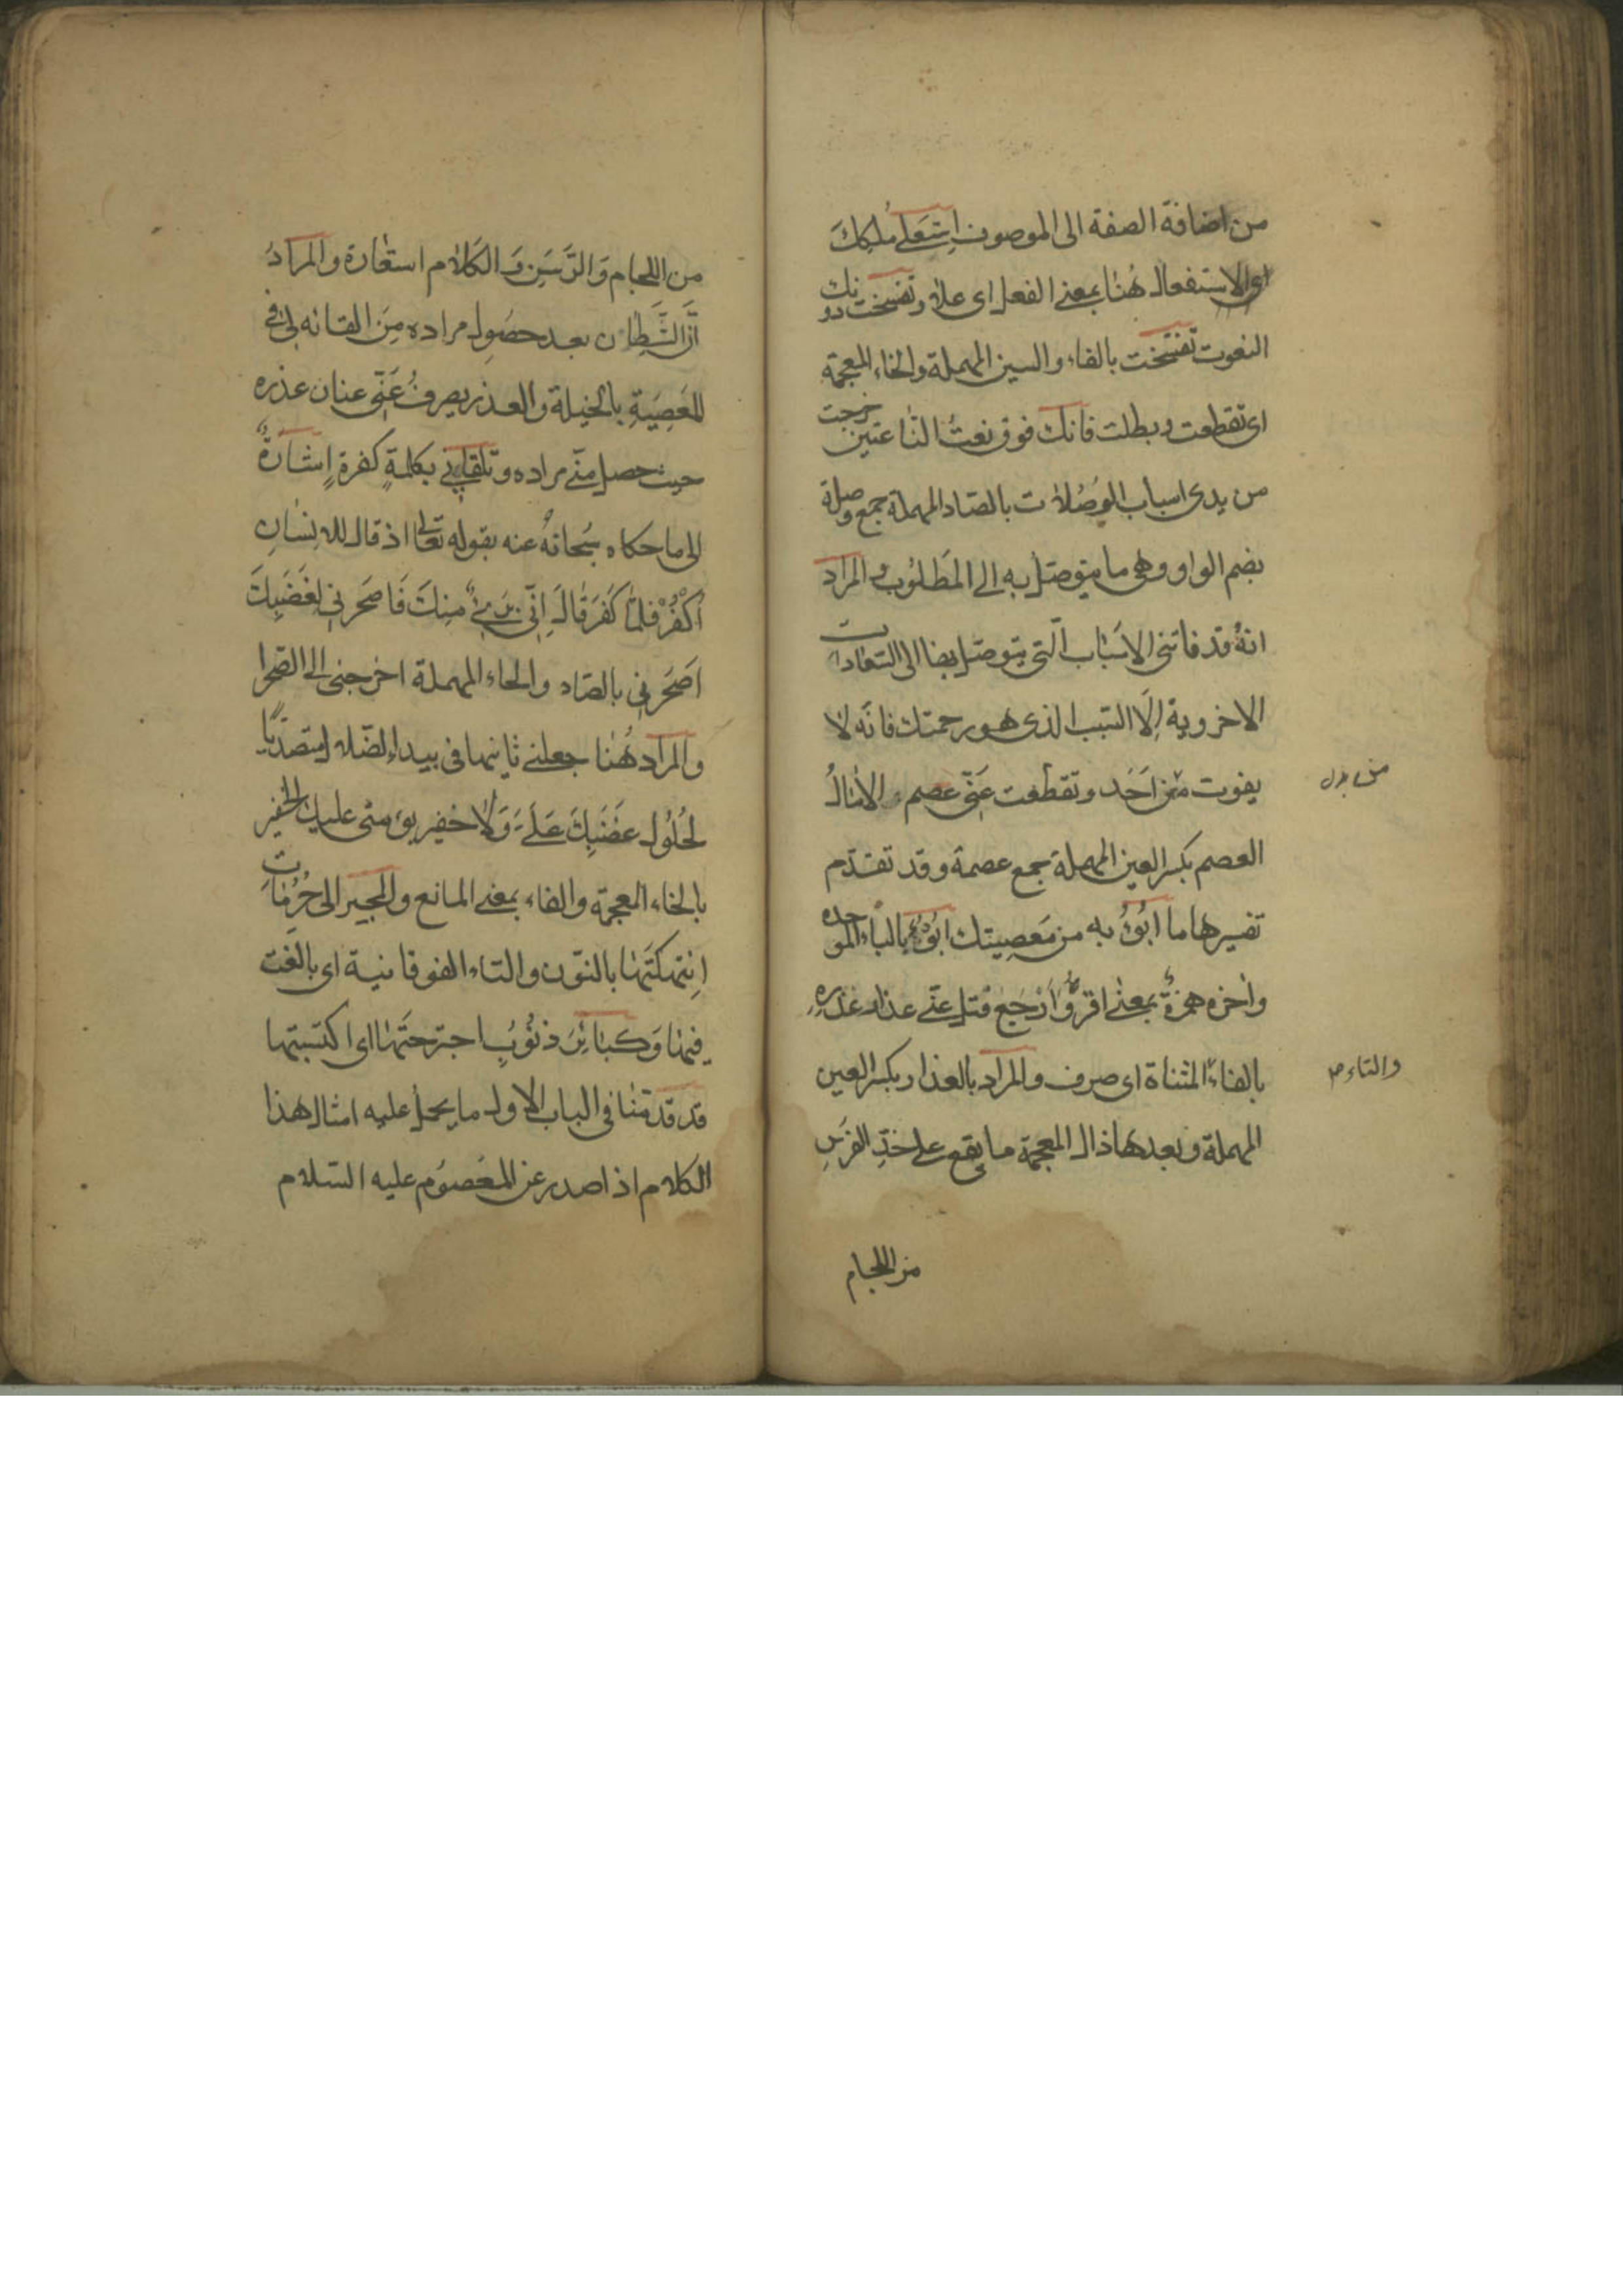 من اضافة الصفة الى الموصوف اِسْتَعلَى مُلكِكَ
اى الاستفعال هُنا بمعنى الفعل اى علا وتفسّخت دونك
النعوت تفسّخت بالفاء والسين المهملة والخاء المعجمة
اى تقطعت وبطلت فانك فوق نعتُ النّاعتين خرجت
من يدى اسباب الوُصُلات بالصّاد المهملة جمع وصلة
بضم الواو وهى ما يتوصّل به الى المَطلُوب والمراد
انهُ قد فاتنى الاسَبْاب الّتى يتوصّل بها الى السّعادات
الاخروية اِلّا السّبب الذى هو رحمتك فانّه لا
يفوت من اَحَد وتقطّعت عَنّى عصم الامٰالُ
العصم بكسر العين المهملة جمع عصمة وقد تقدّم
تفسيرها ما ابُوُءُ به من مَعصِيتك ابُوُءُ بالباء الموحده
واخره همزةٌ بمعنٰى اقرُّ وَاَرْجَع فتل عنّى عذار عذرِهِ
بالفاء المثناة اى صرف والمراد بالعذار بكسر العين
المهملة وبعدها ذال المعجمة ما يقع على خدِّ الفرَسِ
والتاء صح
من اللجام
من اللجام وَالرَّسَنِ وَ الكَلام استعٰارة والمرادُ
اَنَّ الشَّيطٰان بعد حصَول مراده مِنَ القائه لى فى
المعَصِيَةِ بالحيلة والعذر يصرفُ عَنّى عنان عذره
حيث حصل منّى مراده وتلقّانى بكلمةِ كفرهِ اِشٰارَةٌ
الى ما حكاه سُبحانهُ عنه بقوله تعالى اذ قال للانسٰانِ
اُكْفُرْ فلمّٰا كَفَرَ قٰالَ اِنّى بَرىءٌ مِنكَ فَاصَحَرَنى لِغَضَبِكَ
اَصَحَرَنى بالصّاد والحاء المهملة اخرجنى الى الصّحرا
والمراد هُنٰا جعلنى تائها فى بيداء الضّلال متصدّيًا
لحُلُول غضَبِكَ عَلَىَّ وَلٰا خفير يؤمننى عليك الخفير
بالخاء المعجمة والفاء بمعنى المانع والمجير الى حُرُمٰات
اِنتهكتَهٰا بالنّون والتاء الفوقانية اى بالغت
فيهٰا وَكَبٰائِرَ ذنُوُبٍ اجترحتَهٰا اى اكتسبتها
قد قدّمنٰا فى الباب الاول ما يحمل عليه امثال هذا
الكلام اذا صدر عن المعَصوُم عليه السّلام